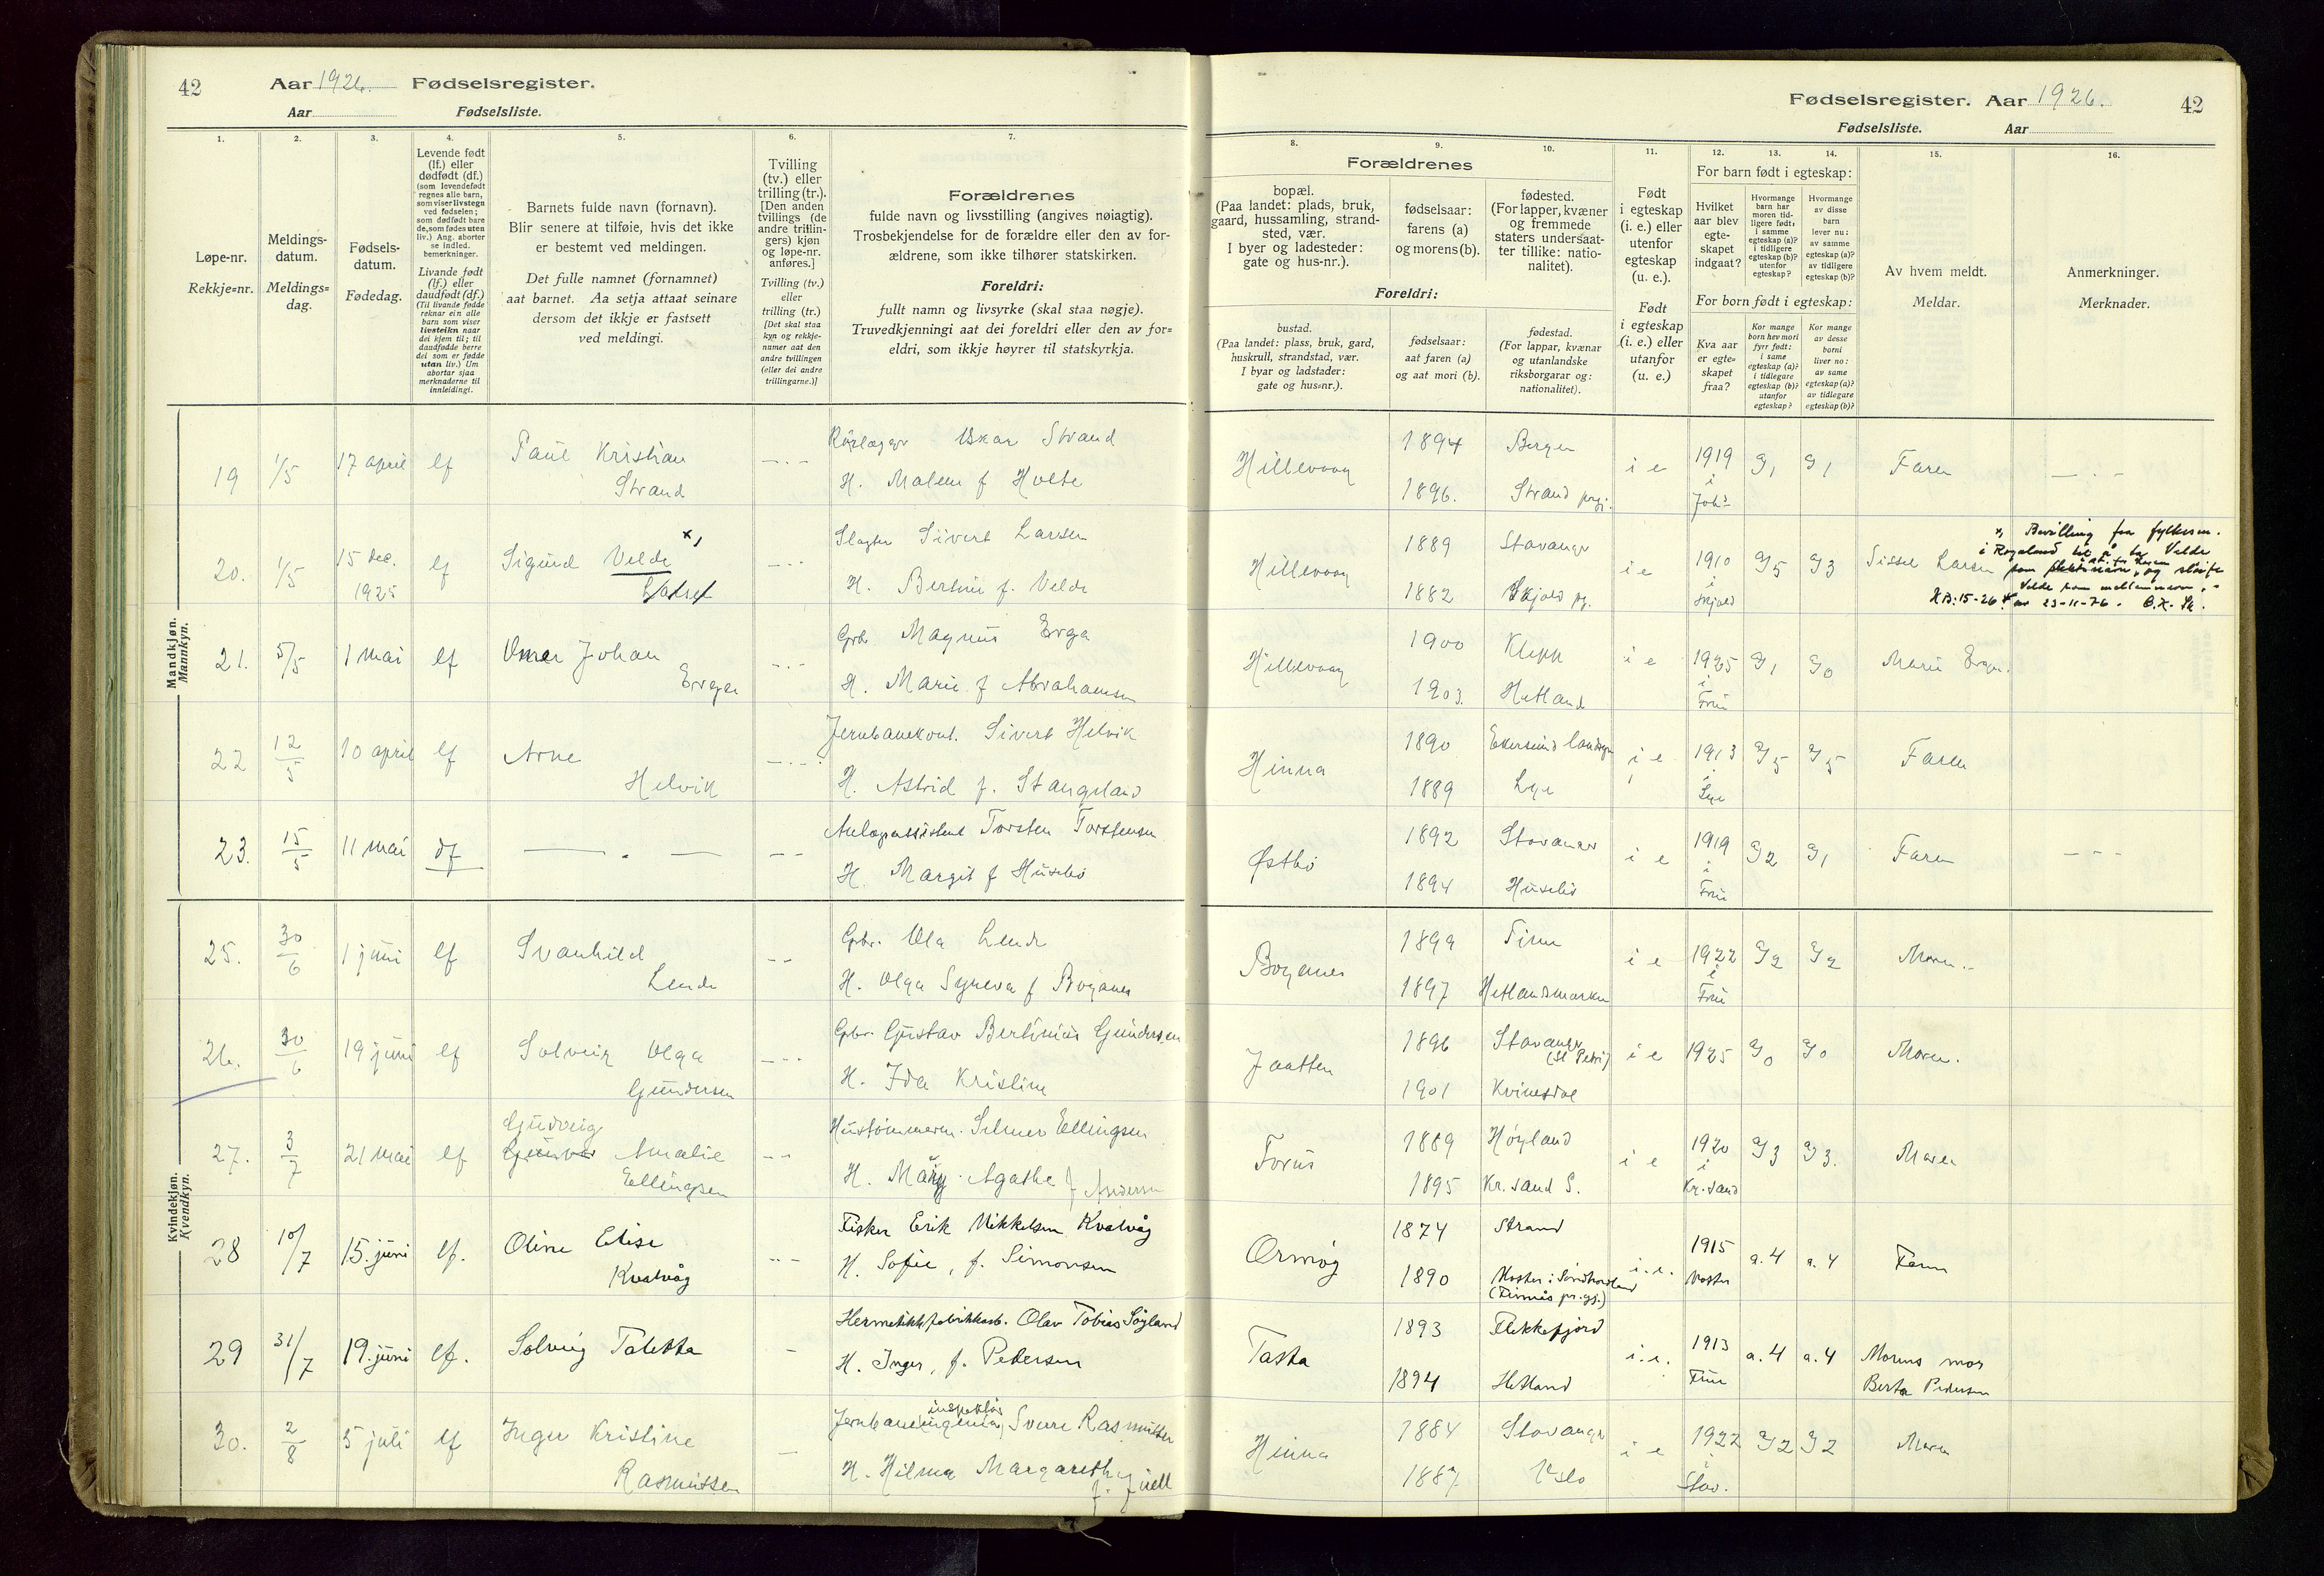 42 Aar 1926. Fødselsregister.
Aar Fødselsliste.
Fødselsregister. Aar 1926. 42
Fødselsliste. Aar
1.
Løpe-nr.
Rekkje=nr.
2.
Meldings-
datum.
Meldings=
dag.
3.
Fødsels-
datum.
Fødedag.
4.
Levende født
(lf.) eller
dødfødt (df.)
(som levendefødt
regnes alle barn,
som viser livstegn
ved fødselen;
som dødfødt bare
de, som fødes uten
liv.) Ang. aborter
se indled.
bemerkninger.
Livande født
(lf.) eller
daudfødt (df.)
(Til livande fødde
reknar ein alle
barn som viser
livsteikn naar
dei kjem til; til
daudfødde berre
dei som er fødde
utan liv.) Um
abortar sjaa
merknaderne til
innleidingi.
5.
Barnets fulde navn (fornavn).
Blir senere at tilføie, hvis det ikke
er bestemt ved meldingen.
Det fulle namnet (fornamnet)
aat barnet. Aa setja attaat seinare
dersom det ikkje er fastsett
ved meldingi.
6.
Tvilling
(tv.) eller
trilling (tr.).
[Den anden
tvillings (de
andre trillin-
gers) kjøn
og løpe-nr.
anføres.]
Tvilling (tv.)
eller
trilling (tr.)
[Det skal staa
kyn og rekkje-
numer aat den
andre tvillingen
(eller dei andre
trillingarne.)]
7.
Forældrenes
fulde navn og livsstilling (angives nøiagtig).
Trosbekjendelse for de forældre eller den av for-
ældrene, som ikke tilhører statskirken.
Foreldri:
fullt namn og livsyrke (skal staa nøgje).
Truvedkjenningi aat dei foreldri eller den av for=
eldri, som ikkje høyrer til statskyrkja.
8.
Forældrenes
bopæl.
(Paa landet: plads, bruk,
gaard, hussamling, strand-
sted, vær.
I byer og ladesteder:
gate og hus-nr.).
Foreldri:
bustad.
(Paa landet: plass, bruk, gard,
huskrull, strandstad, vær.
I byar og ladstader:
gate og hus=nr.).
9.
fødselsaar:
farens (a)
og morens (b).
fødselsaar:
aat faren (a)
og aat mori (b).
10.
fødested.
(For lapper, kvæner
og fremmede
staters undersaat-
ter tillike: natio-
nalitet).
fødestad.
(For lappar, kvænar
og utanlandske
riksborgarar og:
nationalitet).
11.
Født
i egteskap
(i. e.) eller
utenfor
egteskap
(u. e.).
Født
i egteskap
(i. e.) eller
utanfor
(u. e.)
12.
For barn født i egteskap:
Hvilket
aar blev
egte-
skapet
indgaat?
For born født i egteskap:
Kva aar
er egte=
skapet
fraa?
13.
Hvormange
barn har
moren tid-
ligere født:
i samme
egteskap (a)?
i tidligere
egteskap (b)?
utenfor
egteskap?
Kor mange
born hev mori
fyrr født:
i same
egteskap (a)?
i tidlegare
egteskap (b)?
utanfor
egteskap?
14.
Hvormange
av disse
barn
lever nu:
av samme
egteskap (a)?
av tidligere
egteskap (b)?
Kor mange
av desse
borni
liver no:
av same
egteskap (a)?
av tidlegare
egteskap (b)?
15.
Av hvem meldt.
Meldar.
16.
Anmerkninger.
Merknader.
Mandkjøn.
Mannkyn.
19 1/5 17 april lf Paul Kristian Strand Rørlægger Oskar Strand
H. Malene f Holte
Hillevaag 1894 Bergen i e 1919 i Joh. Faren
1896. Strand prgj.
20. 1/5 15 dec. 1925 lf Sigurd Velde x) Slagter Sivert Larsen
H. Bertine f. Velde
Hillevaag 1889 Stavanger i e 1910 i Skjold 5 3 Sissel Larsen
1882 Skjold pg.
x) Bevilling fra fylkesm.
i Rogaland til å ta Velde
som slektsnavn, og sløife
Velde som mellemnavn.
21. 5/5 1 mai lf Omar Johan Erga Grbr. Magnus Erga
H. Marie f Abrahamsen
Hillevaag 1900 Klepp i e 1925 i Frue 1 0 Marie Erga.
1903. Hetland
22 12/5 10 april lf Arne Helvik Jernbanekont. Sivert Helvik
H. Astrid f. Stangeland
Hinna 1890 Ekersund landsogn i e 1913 i Lye 5 5 Faren
1889 Lye
23. 15/5 11 mai df Anlægsassistent Torsten Torstensen
H. Margit f Husebø
Østbø 1892 Stavanger i e 1919 i Frue 2 1 Faren
1894 Husebø
Kvindekjøn.
Kvendkyn.
25. 30/6 1 juni lf Svanhild Lende Gbr. Ola Lende
H. Olga Syneva f Boganes
Boganes 1899 Time i e 1922 i Frue 2 2 Moren.
1897 Hetlandsmarken
26. 30/6 19 juni lf Solveig Olga Gundersen Gbr. Gustav Bertinius Gundersen
H. Ida Kristine
Jaatten 1896 Stavanger (St Petri) i e 1925 0 0 Moren.
1901 Kvinesdal
27. 3/7 21 mai lf Gudveig Amalie Ellingsen Hustømmerm. Selmer Ellingsen
H. Mary Agathe f Andersen
Forus 1889 Høyland i e 1920 i Kr.sand 3 3. Moren
1895 Kr.sand S.
28 10/7 15. juni lf. Oline Elise Kvalvåg Fisker Erik Mikkelsen Kvalvåg
H. Sofie, f. Simonsen
Ormøy 1874 Strand i.e. 1915 Moster a. 4 a. 4 Faren
1890 Moster i Søndhordland
(Finnås pr.gj.)
29 31/7 19. juni lf. Solveig Taletta Hermetikkfabrikkarb. Olav Tobias Søyland
H. Inger, f. Pedersen
Tasta 1893 Flekkefjord i.e. 1913 Frue a. 4 a. 4 Morens mor
1894 Hetland Berta Pedersen
30. 2/8 5 juli lf Inger Kristine Rasmussen inspektør
Jernbaneingeniør Sverre Rasmussen
H. Hilma Margarethe f. Juell
Hinna 1884 Stavanger i e 1922 i Stav. 2 2 Moren
1887 Oslo